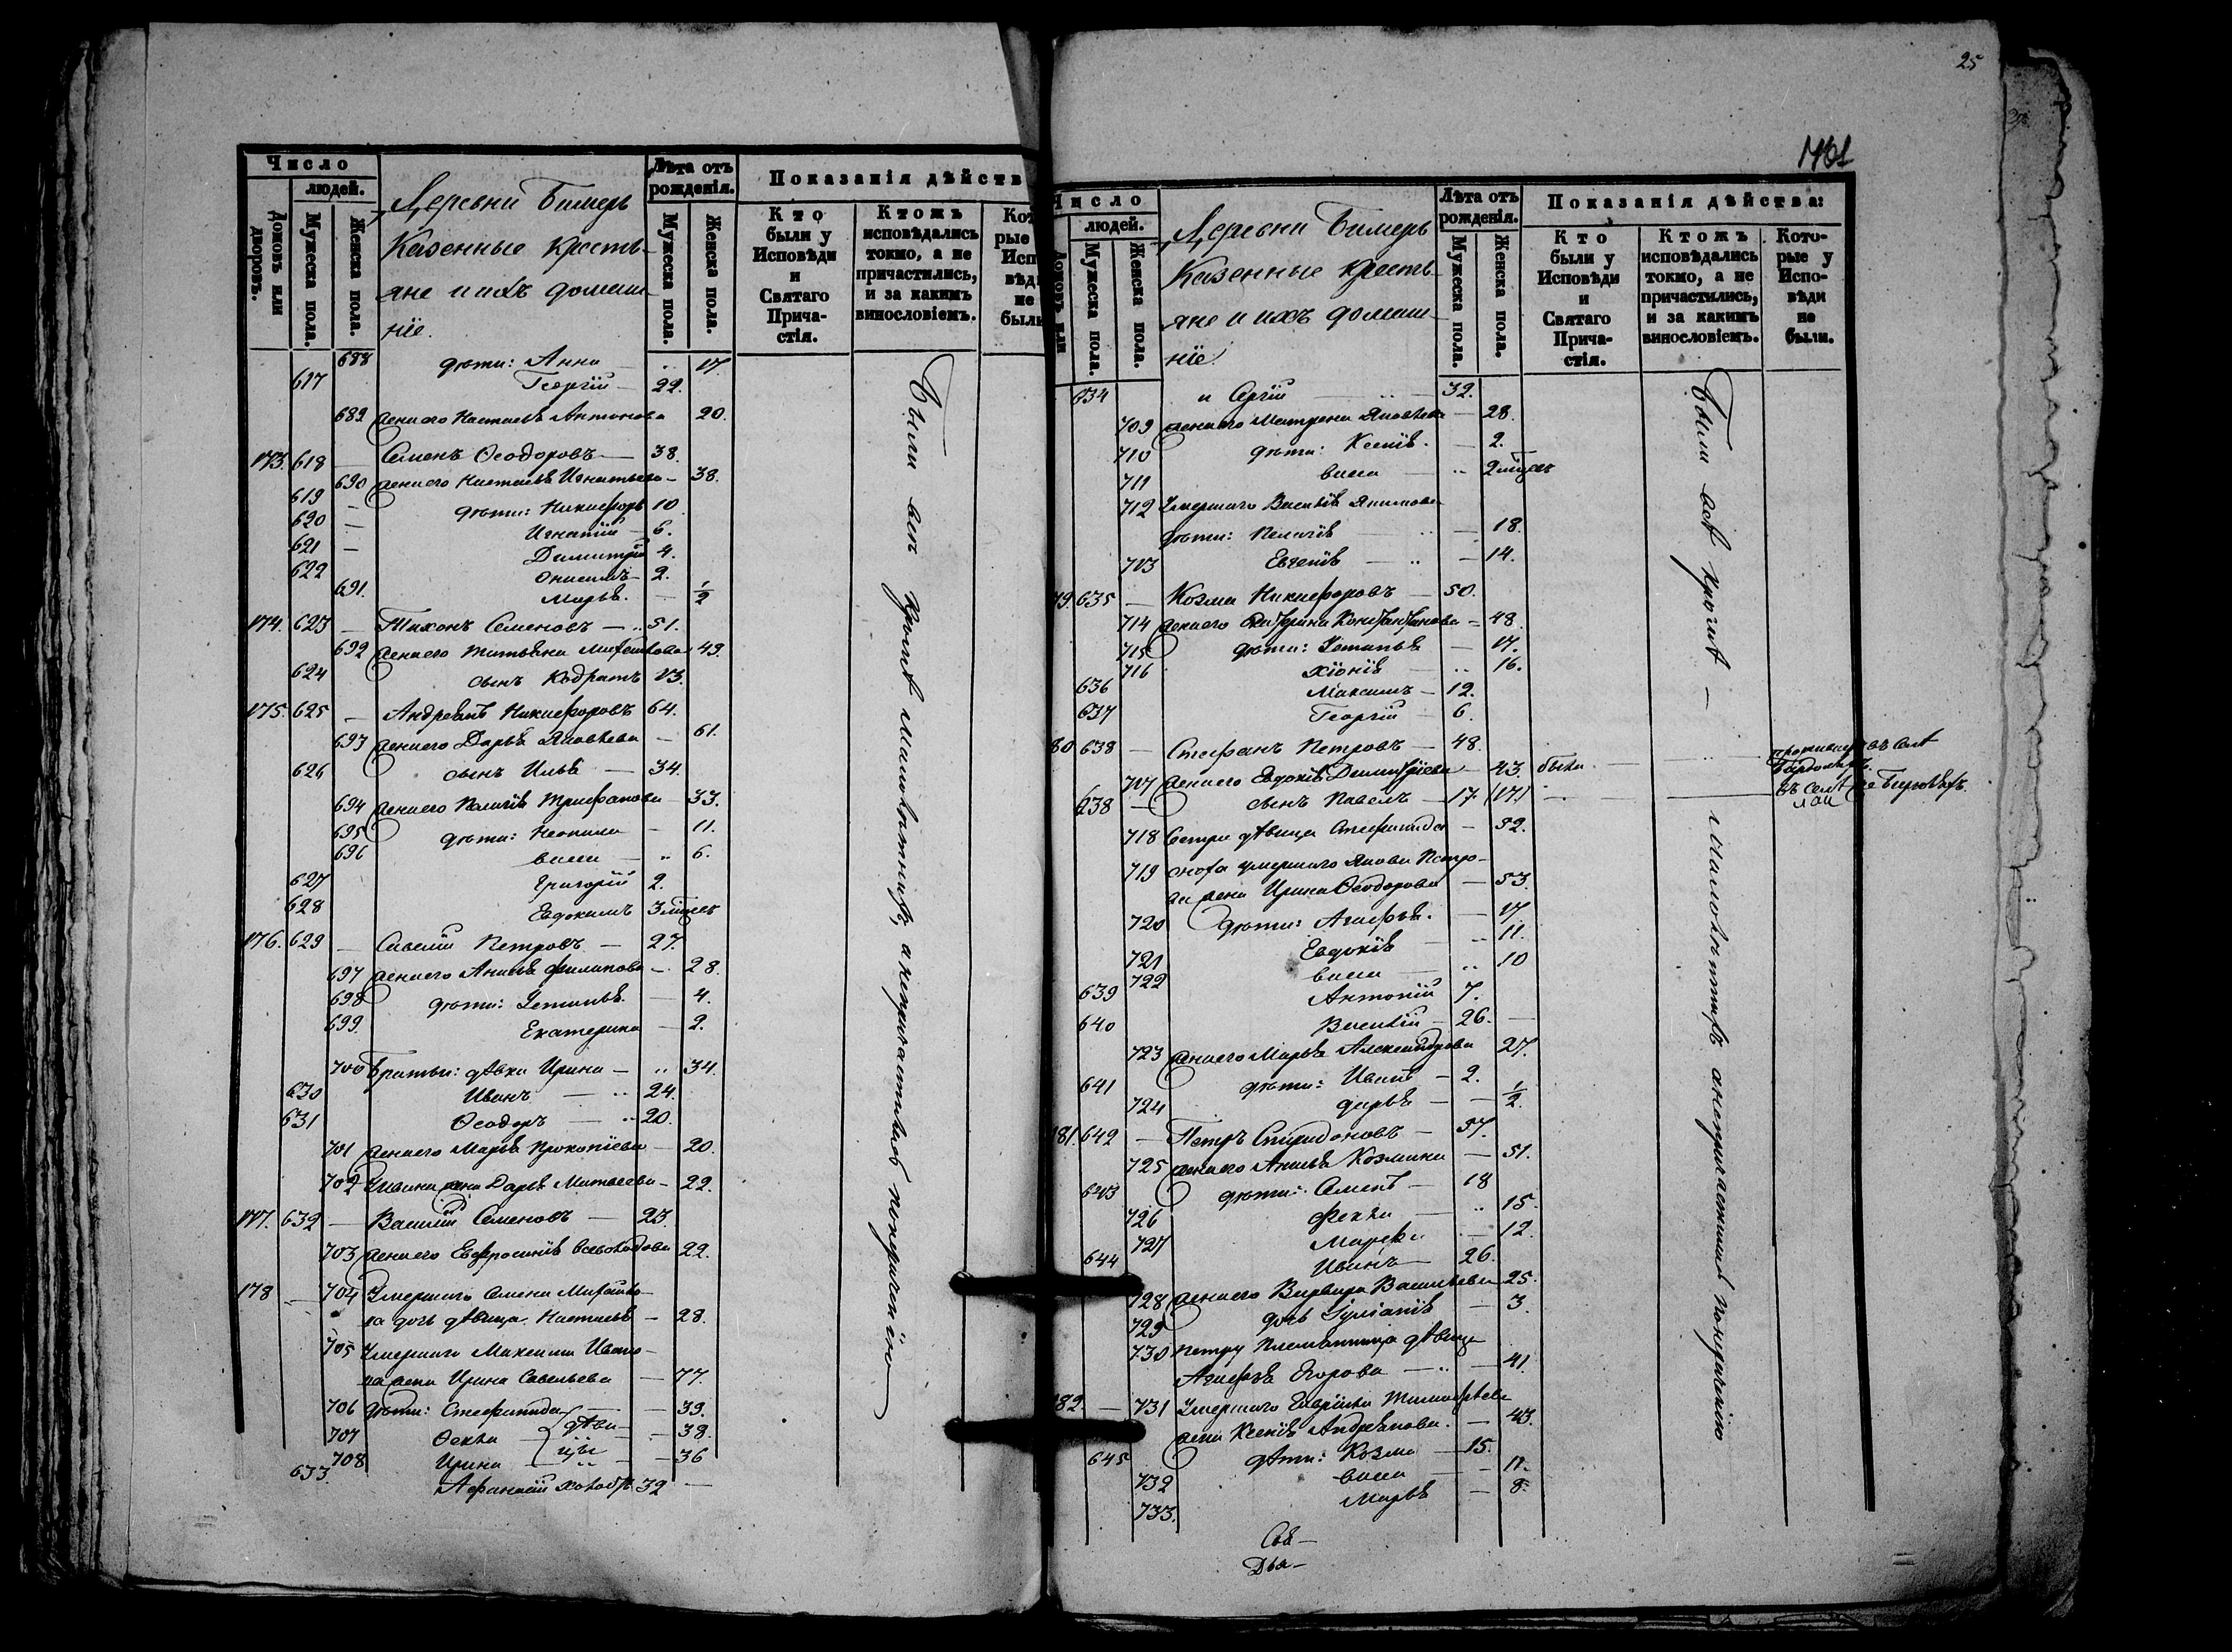 Число
людей.
Домовъ или дворовъ.
Мужеска пола.
Женска пола.
Деревни Бимерь
Казенные кресть-
яне и ихъ домаш-
ніе.
Лѣта отъ рожденія.
Мужеска пола.
Женска пола.
Показанія дѣйств
Кто были у Исповѣди и Святаго Прича- стія.
Ктожъ исповѣдались токмо, а не причастились, и за какимъ винословіемъ.
Кот рые Исп вѣд не был
688 дѣти: Анна 17.
617 Георгій 22.
689 жена его Настасья Антонова 20.
173. 618 Семенъ Ѳеодоровъ 38.
690 жена его Настасья Игнатьева 38.
619 дѣти: Никифоръ 10
620 Игнатій 6.
621 Димитрій 4.
622 Онисимъ 2.
691. Марья. 1/2
174. 623 Тихонъ Семеновъ 51.
692 жена его Татьяна Михайлова 49.
624 сынъ Кодратъ 13.
175. 625 Андреянъ Никифоровъ 64.
693 жена его Дарья Яковлева 61.
626 сынъ Илья 34.
694 жена его Пелагія Трифонова 33.
695 дѣти: Неонила 11.
696 васса 6.
627 Григорій 2.
628 Евдокимъ 3 мѣсяс
176. 629 Савелій Петровъ 27.
697 жена его Анисья Филипова 28.
698 дѣти: Устинья 4.
699. Екатерина 2.
700 Братьи: дѣвка Ирина 34.
630 Иванъ 24.
631 Ѳеодоръ 20.
701 жена его Марья Прокопіева 20.
702 Ивана жена Дарья Матвѣева 22.
177. 632 Василій Семеновъ 23.
703 жена его Евфросинія Всеволодова 22.
178 704 Умершаго Семена Михайло-
ва дочь дѣвица Настасья 28.
705 Умершаго Максима Ивано-
ва жена Ирина Савельева 77.
706 дѣти: Стефанида 39.
707 Ѳекла дѣви- 38.
708 Ирина цы 36
633. Афанасій холостъ 32
Были всѣ кромѣ малолѣтнихъ, а непричастились по нерачению
25
1761
Число
людей.
Домовъ или
Мужеска пола.
Женска пола.
Деревни Бимерь
Казенные кресть-
яне и ихъ домаш-
ніе.
Лѣта отъ рожденія.
Мужеска пола.
Женска пола.
Показанія дѣйства:
Кто были у Исповѣди и Святаго Прича- стія.
Ктожъ исповѣдались токмо, а не причастились, и за какимъ винословіемъ.
Кото- рые у Испо- вѣди не были.
634 и Сергій 32.
709 жена его Матрена Яковлева 28.
710 дѣти: Ксенія. 2.
711 васса 2 мѣсяс
712 Умершаго Василія Якимова
дѣти: Пелагія 18.
713 Евгенія 14.
79. 635 Козма Никифоровъ 50.
714 жена его Екатерина Константинова 48.
715 дѣти: Устинья 17.
716 Хіонія 16.
636 Максимъ 12.
637 Георгій 6.
80 638 Стефанъ Петровъ 48.
717 жена его Евдокія Димитріева 43. была
638 сынъ Павелъ 17 (17)
718 Сестра дѣвица Стефанида 52.
719 сноха умершаго Якова Петро-
ва жена Ирина Ѳеодорова 53.
720 дѣти: Агафья. 17
721 Евдокія 11.
722 васса 10
639 Антоній 7.
640 Василій 26.
723 жена его Марья Александрова 27.
641 дѣти: Иванъ 2.
724 дарья 1/2.
181. 642 Петръ Спиридоновъ 57.
725 жена его Анисья Козмина 51.
643 дѣти: Семенъ 18
726 Фекла 15.
727 Марфа 12.
644 Иванъ 26.
728 жена его Варвара Васильева 25.
729 дочь Іуліанія 3.
730 Петру племянница дѣвица
Агафья Егорова 41.
182. 731 Умершаго Гавріила Тимофѣева
жена Ксенія Андреянова. 43.
645 дѣти: Козма 15.
732 васса 11.
733. Марья 8.
Свя-
Дья-
Были всѣ кромѣ малолѣтнихъ а непричастились по нерачению